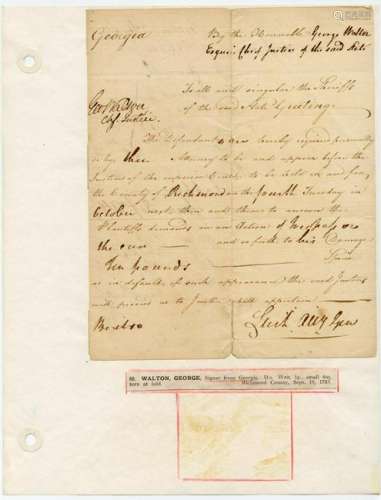 Georgia
By the Honorable George Walton
Esquire Chief Justice of the said State
To all and singular the Sheriffs
of the said State Greeting.
Geo Walton
Chf Justice
The Defendant are hereby required personally
or by Attorney to be and appear before the
Justices of the superior Court, to be held in and for
the County of Richmond on the fourth Tuesday in
October next then and there to answer the
Plaintiffs demands in an Action of Trespass on
the case and so forth to his Damage
Ten pounds
as in default of such appearance the said Justices
will proceed as to Justice shall appertain
Witness
80. WALTON, GEORGE. Signer from Georgia. D.s. Writ, 1p., small 4to,
torn at fold. Richmond County, Sept. 19, 1787.